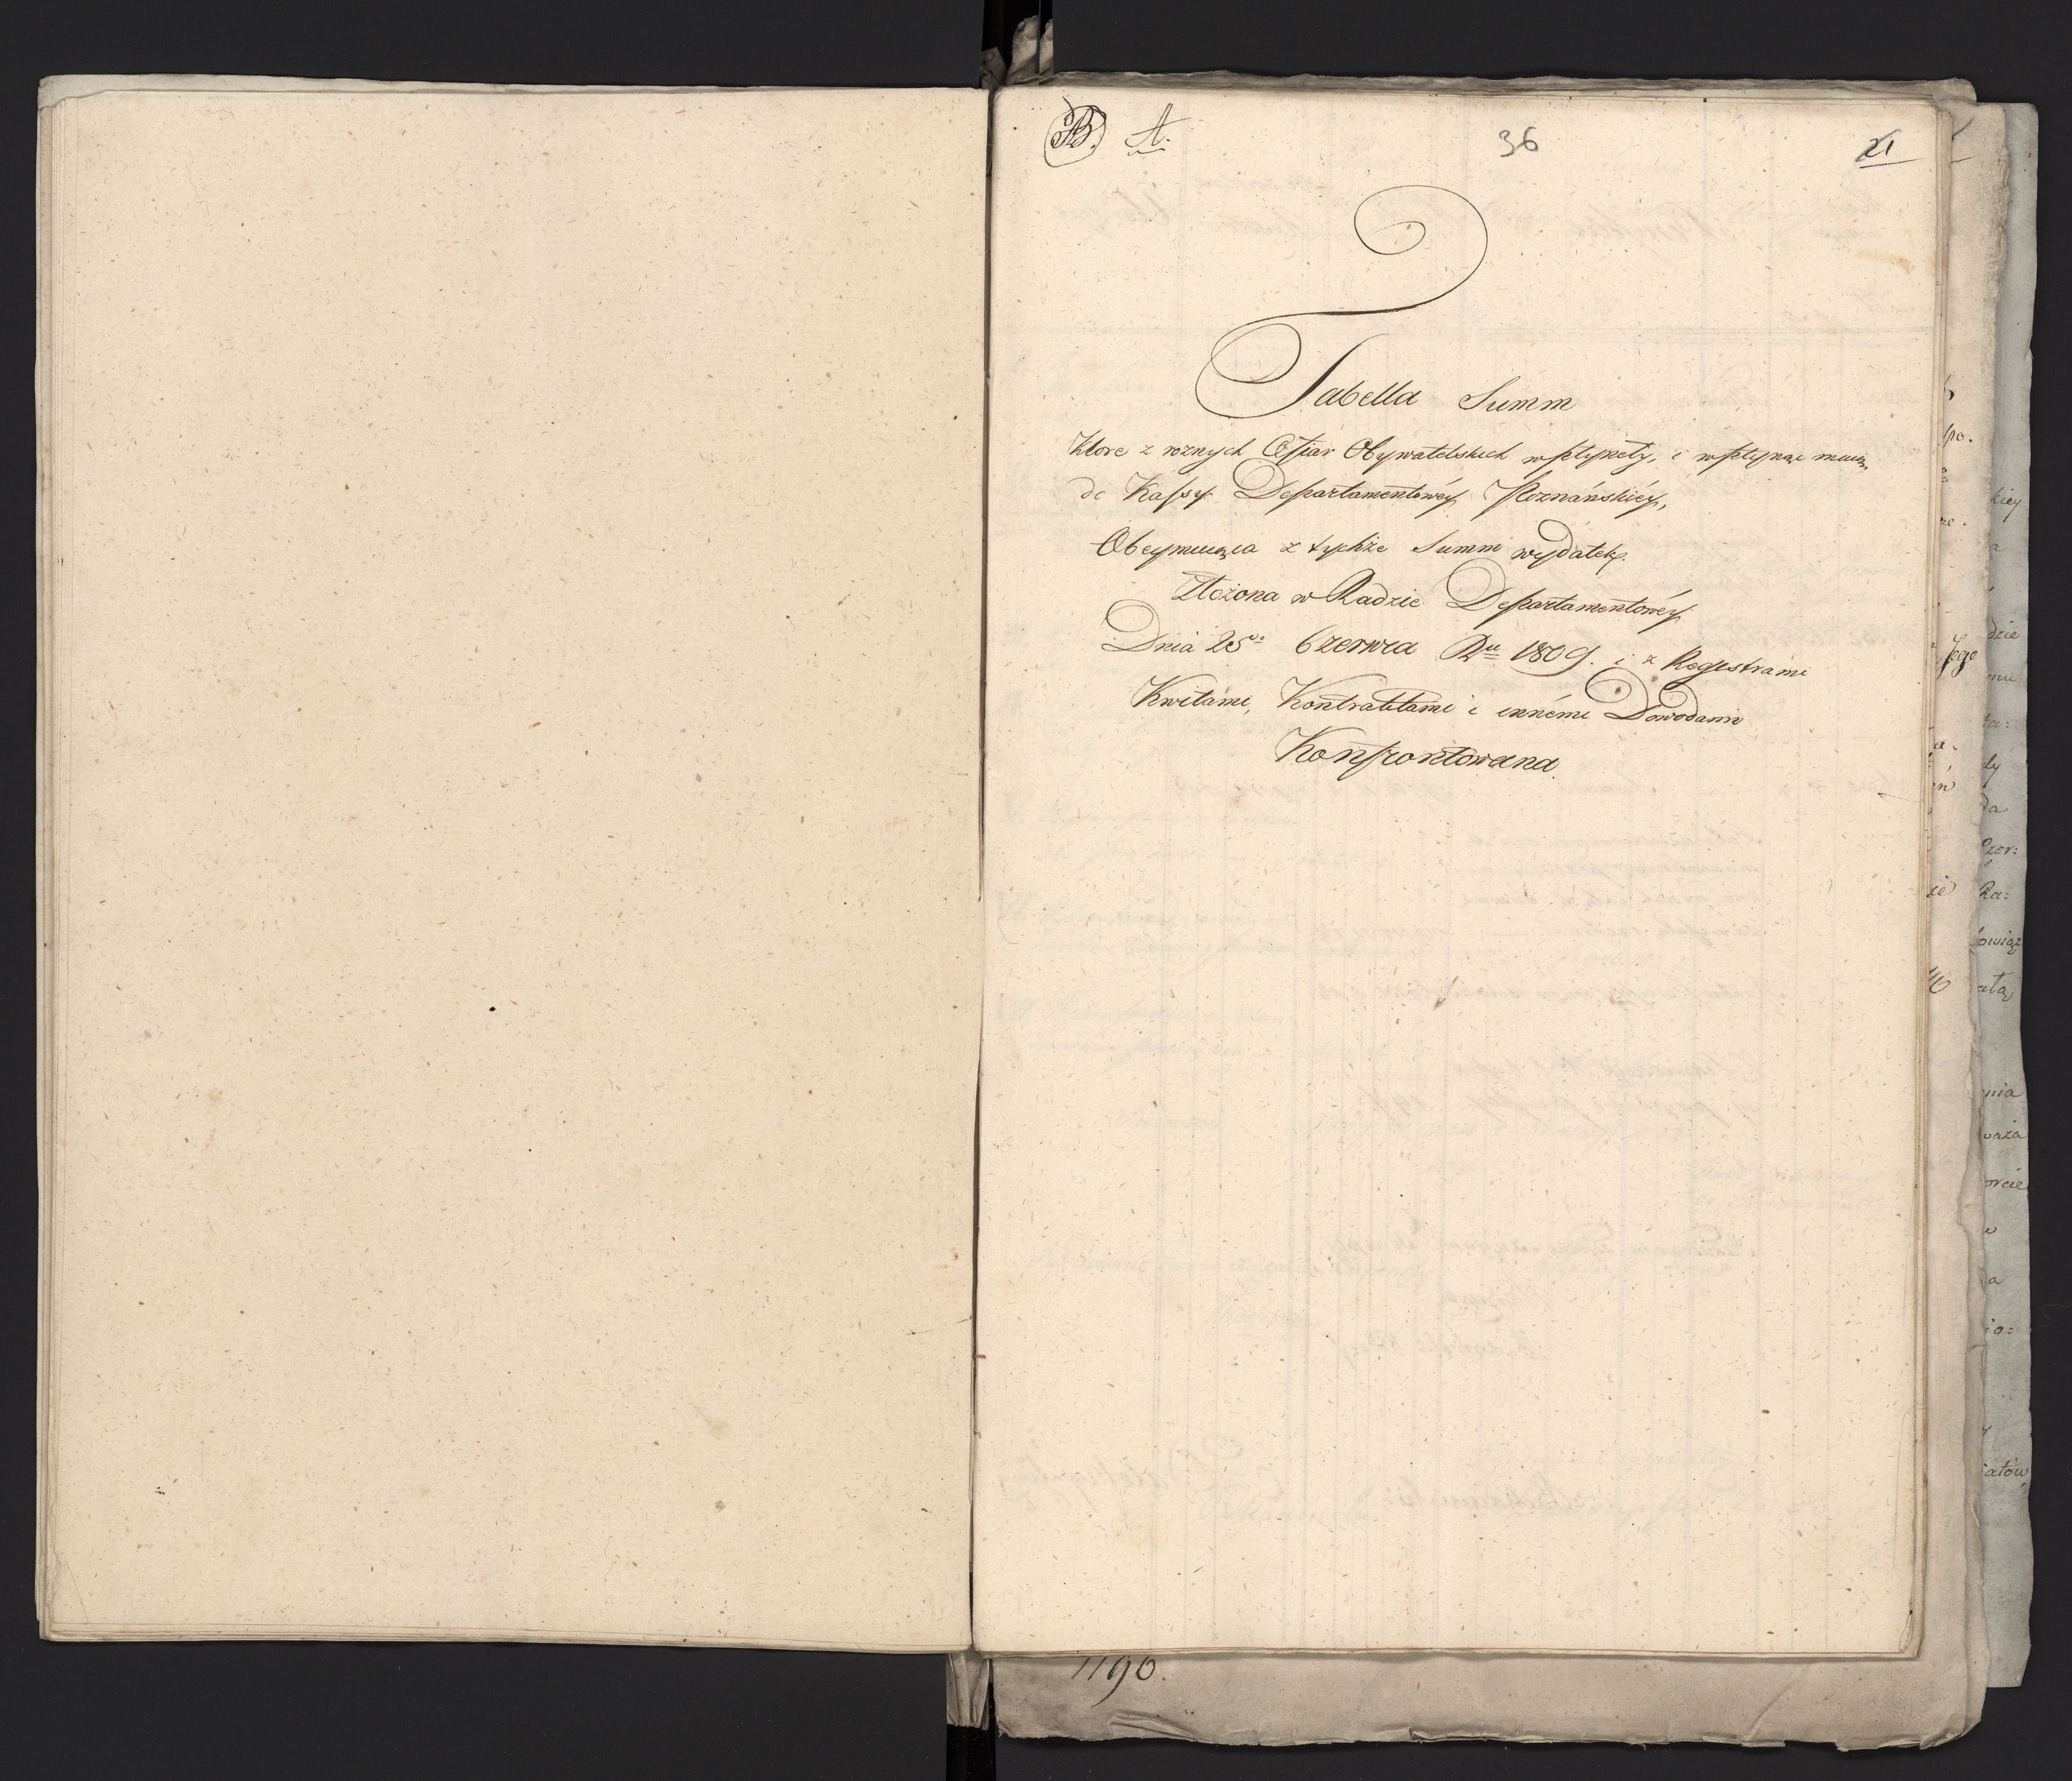 B. A. 36 21
Tabella Summ
Ktore z roznych Ofiar Obywatelskich wpłynęły, i wpłynąć muszą,
do Kassy Departamentowéy Poznańskiéy,
Obeymuiąca z tychże Summ wydatek.
Złożona w Radzie Departamentowéy
Dnia 25go Czerwca Ru 1809. i z Regestrami
Kwitami, Kontraktami i innémi Dowodami
Konfrontowana.
1190.